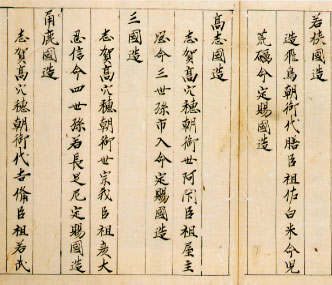 若狭國造
造飛鳥朝御代膳臣祖佐白米命児
荒礪命定賜國造
髙志國造
志賀髙穴穂朝御世阿閇臣祖屋主
思命三世孫市入命定賜國造
三國造
志賀髙穴穂朝御世宗我臣祖彦太
忍信命四世孫若長足尼定賜國造
角鹿國造
志賀髙穴穂朝御代吉備臣祖若武